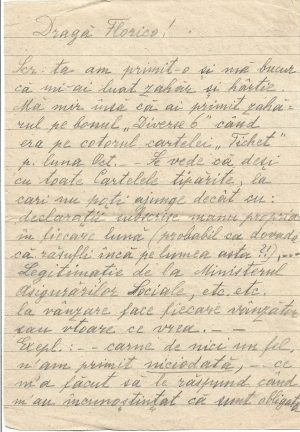 Dragă Florico!
Scr. ta am primit-o și mă bucur
că mi-ai luat zahăr și hârtie.
Mă mir însă că ai primit zahă-
rul pe bonul „Diverse 6" când
era pe cotorul cartelei „Tichet"
p. luna Oct. — Se vede că deși
cu toate Cartelele tipărite, la
cari nu poți ajunge decât cu:
declarații subscrise manu propria
în fiecare lună (probabil ca dovadă
că răsufli încă pe lumea asta?!), ...
Legitimație de la Ministerul
Asigurărilor Sociale, etc. etc.
la vânzare face fiecare vânzător
sau v-toare ce vrea. — —
Exepl.: — carne de nici un fel
n'am primit niciodată, — ce
m'a făcut să le răspund când
m'au încunoștințat că sunt obligată